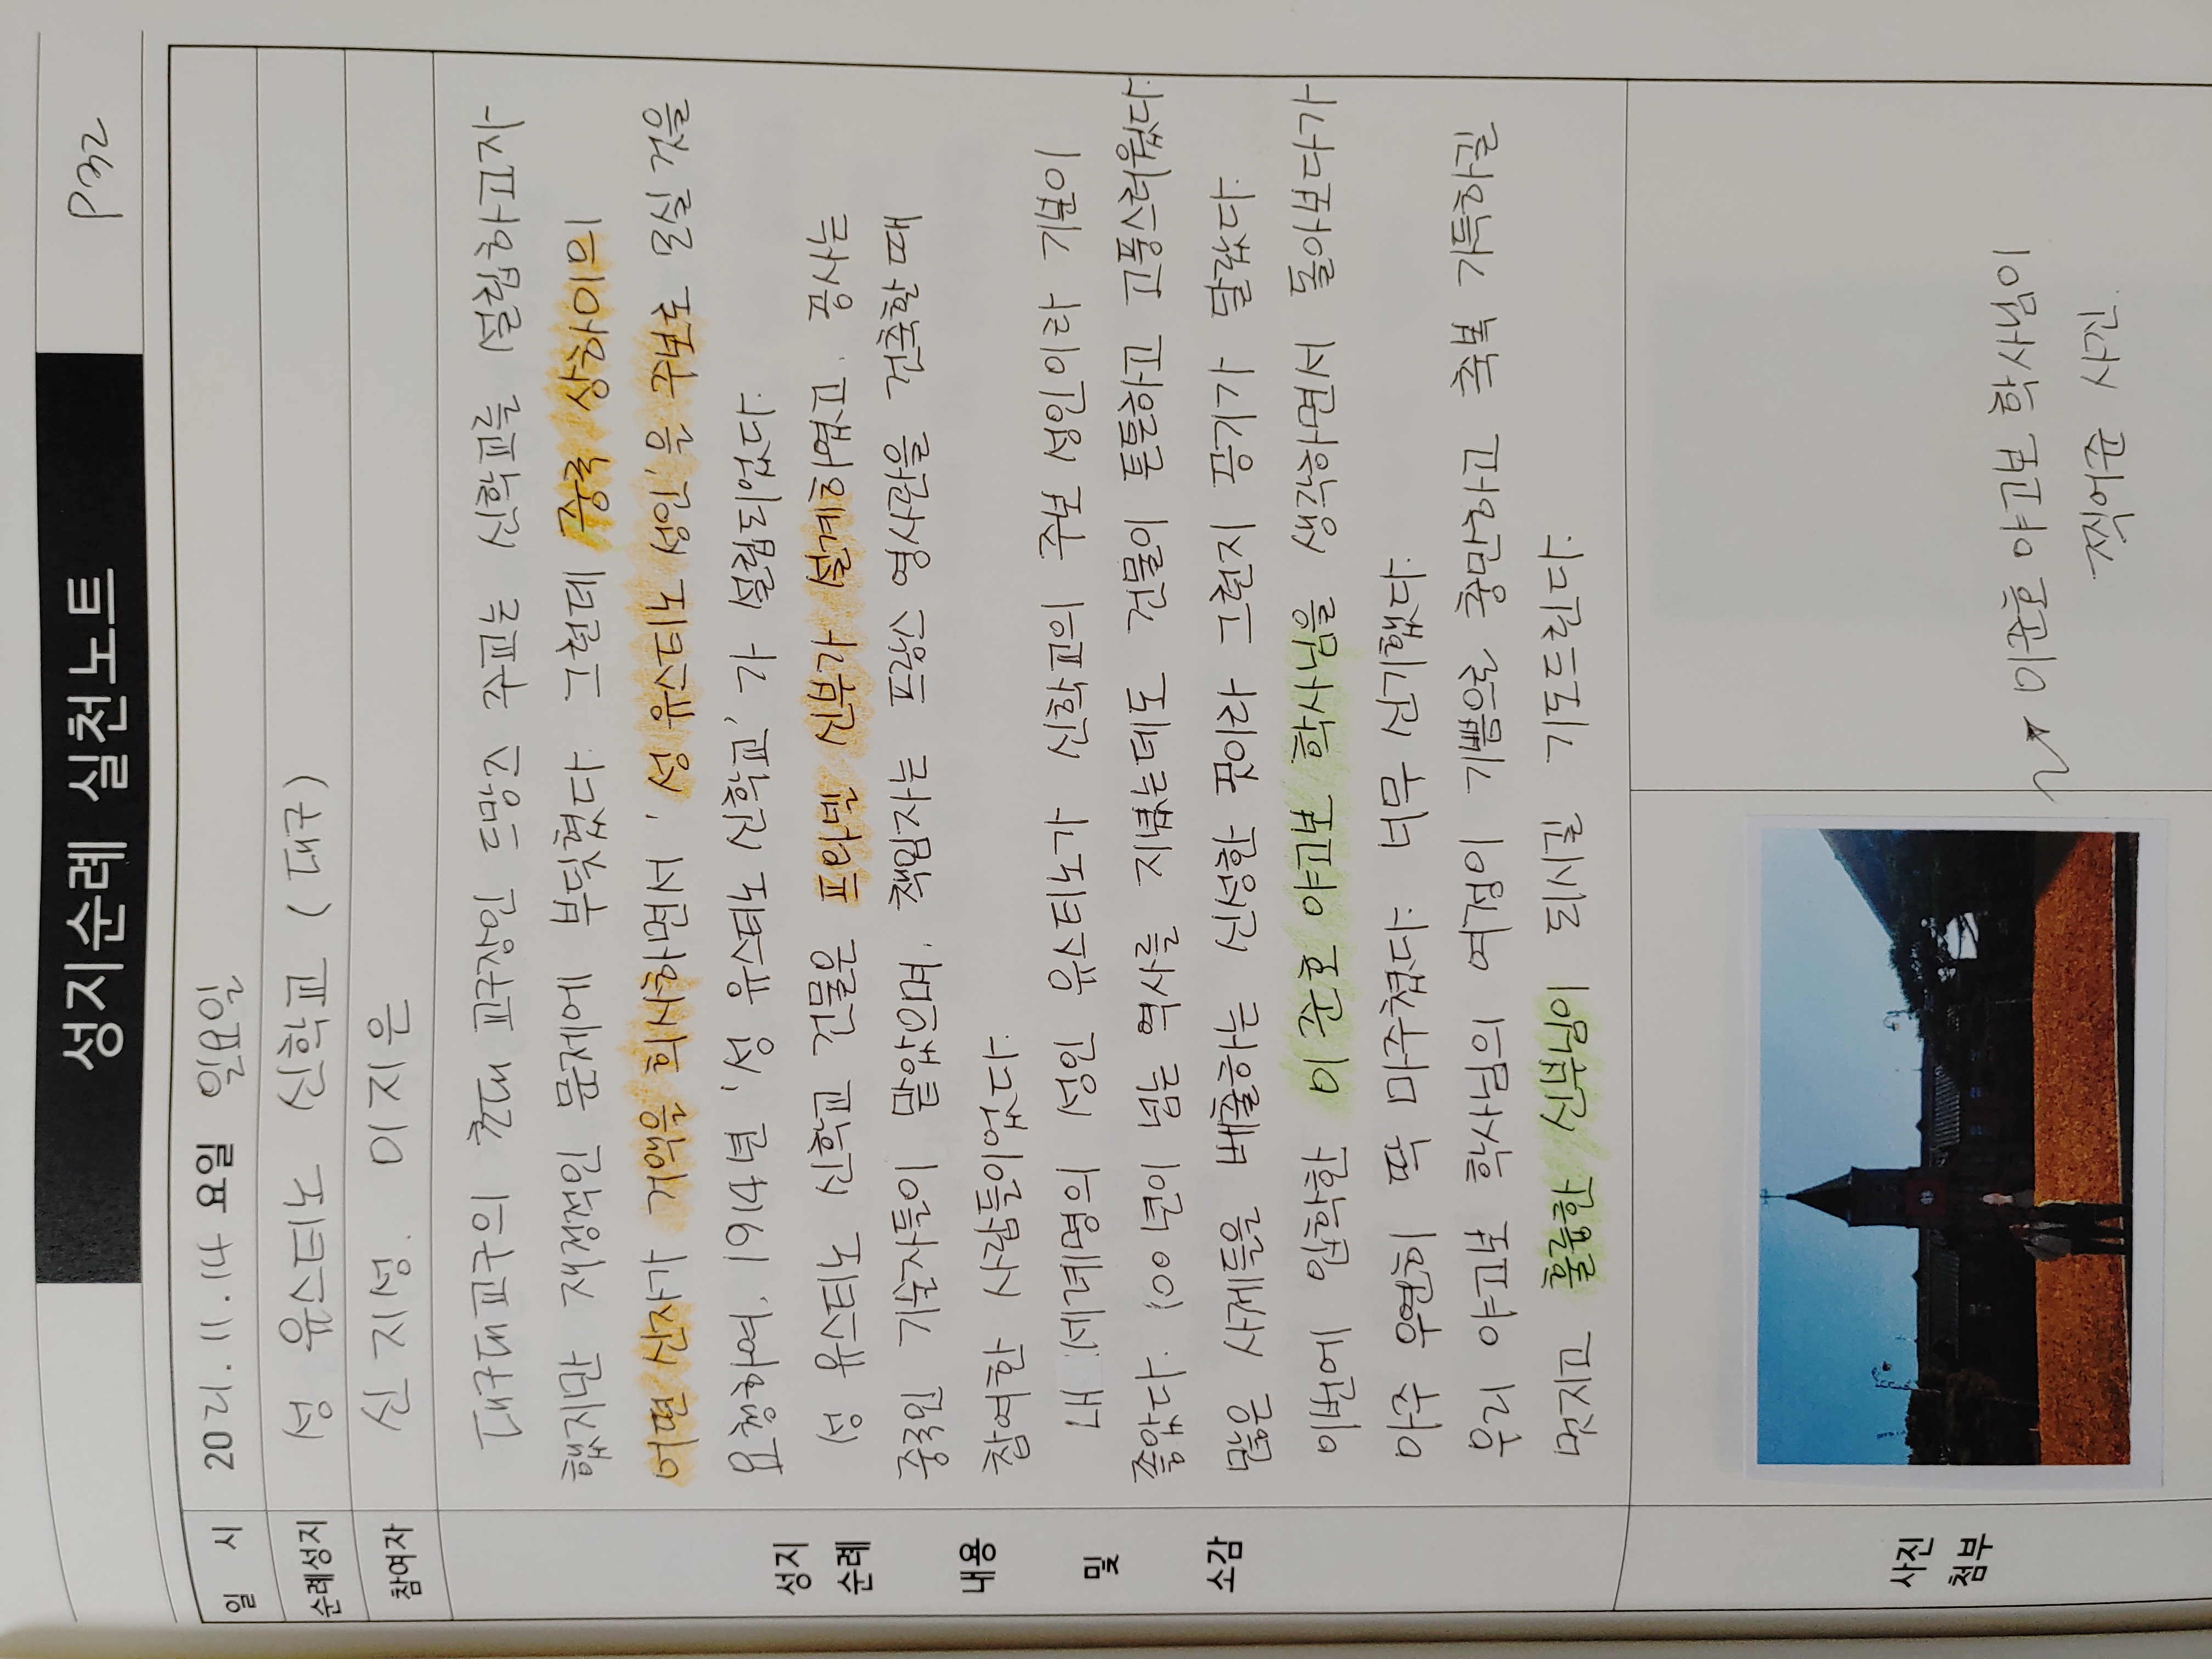 성지순례 실천노트
P32
일 시
2021.11.14 요일 일요일
순례성지
성 유스티노 신학교 (대구)
참여자
신지성. 이지은
성지
순례
내용
및
소감
대구대교구의 초대 교구장인 드망즈 주교는 신학교를 설립하고자
했지만 재정적인 문제에 부딪혔다. 그런데 중국 상하이의
어떤 신자가 거액을 희사하면서 '성 유스티노 성인'을 주보로 모실 것을
요청하여, 1914년 '성 유스티노 신학교'가 설립되었다.
성 유스티노 신학교 건물은 프와넬 신부가 설계하였고, 공사는
중국인 기술자들이 맡았으며, 책임자는 프랑스 영사관을 건축할 때
참여한 사람들이었다.
내 세례명의 성인 유스티노가 신학교의 주보 성인이라 기분이
좋았다. 100년이 넘는 역사를 지녔는데도 건물이 튼튼하고 고풍스러웠다.
많은 사제들을 배출하는 신성한 곳이라 그런지 공기가 달랐다.
이번에 입학한 이준호 야고보 학사님을 생각하면서 돌아보다가
아주 우연히 딱 마주쳤다. 너무 신기했다.
우리 야고보 학사님의 여정이 기쁨으로 충만하고 축복 가득하길
멋지고 훌륭한 신부님이 되시길 기도드린다.
사진
첨부
이준호 야고보 학사님이
찍어준 사진.